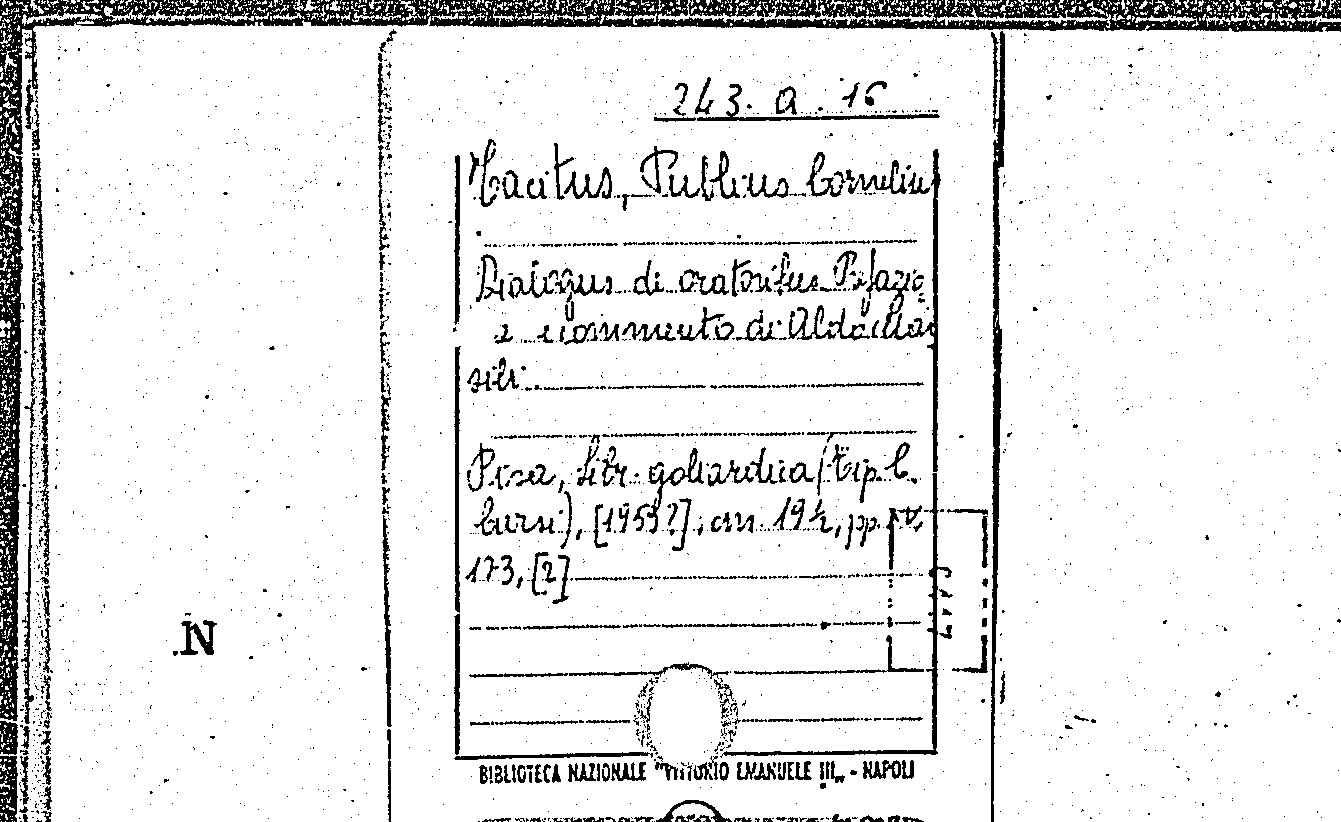 243. a. 16
Tacitus, Publius Cornelius
Dialogus di oratoribus Prefazio=
e commento di Aldo Mar
sili.
Pisa, Libr. goliardica (tip. C.
Cursi), [1959?], cm 19½, pp. IV,
173, [2]
N
BIBLIOTECA NAZIONALE "VITTORIO EMANUELE III„ - NAPOLI